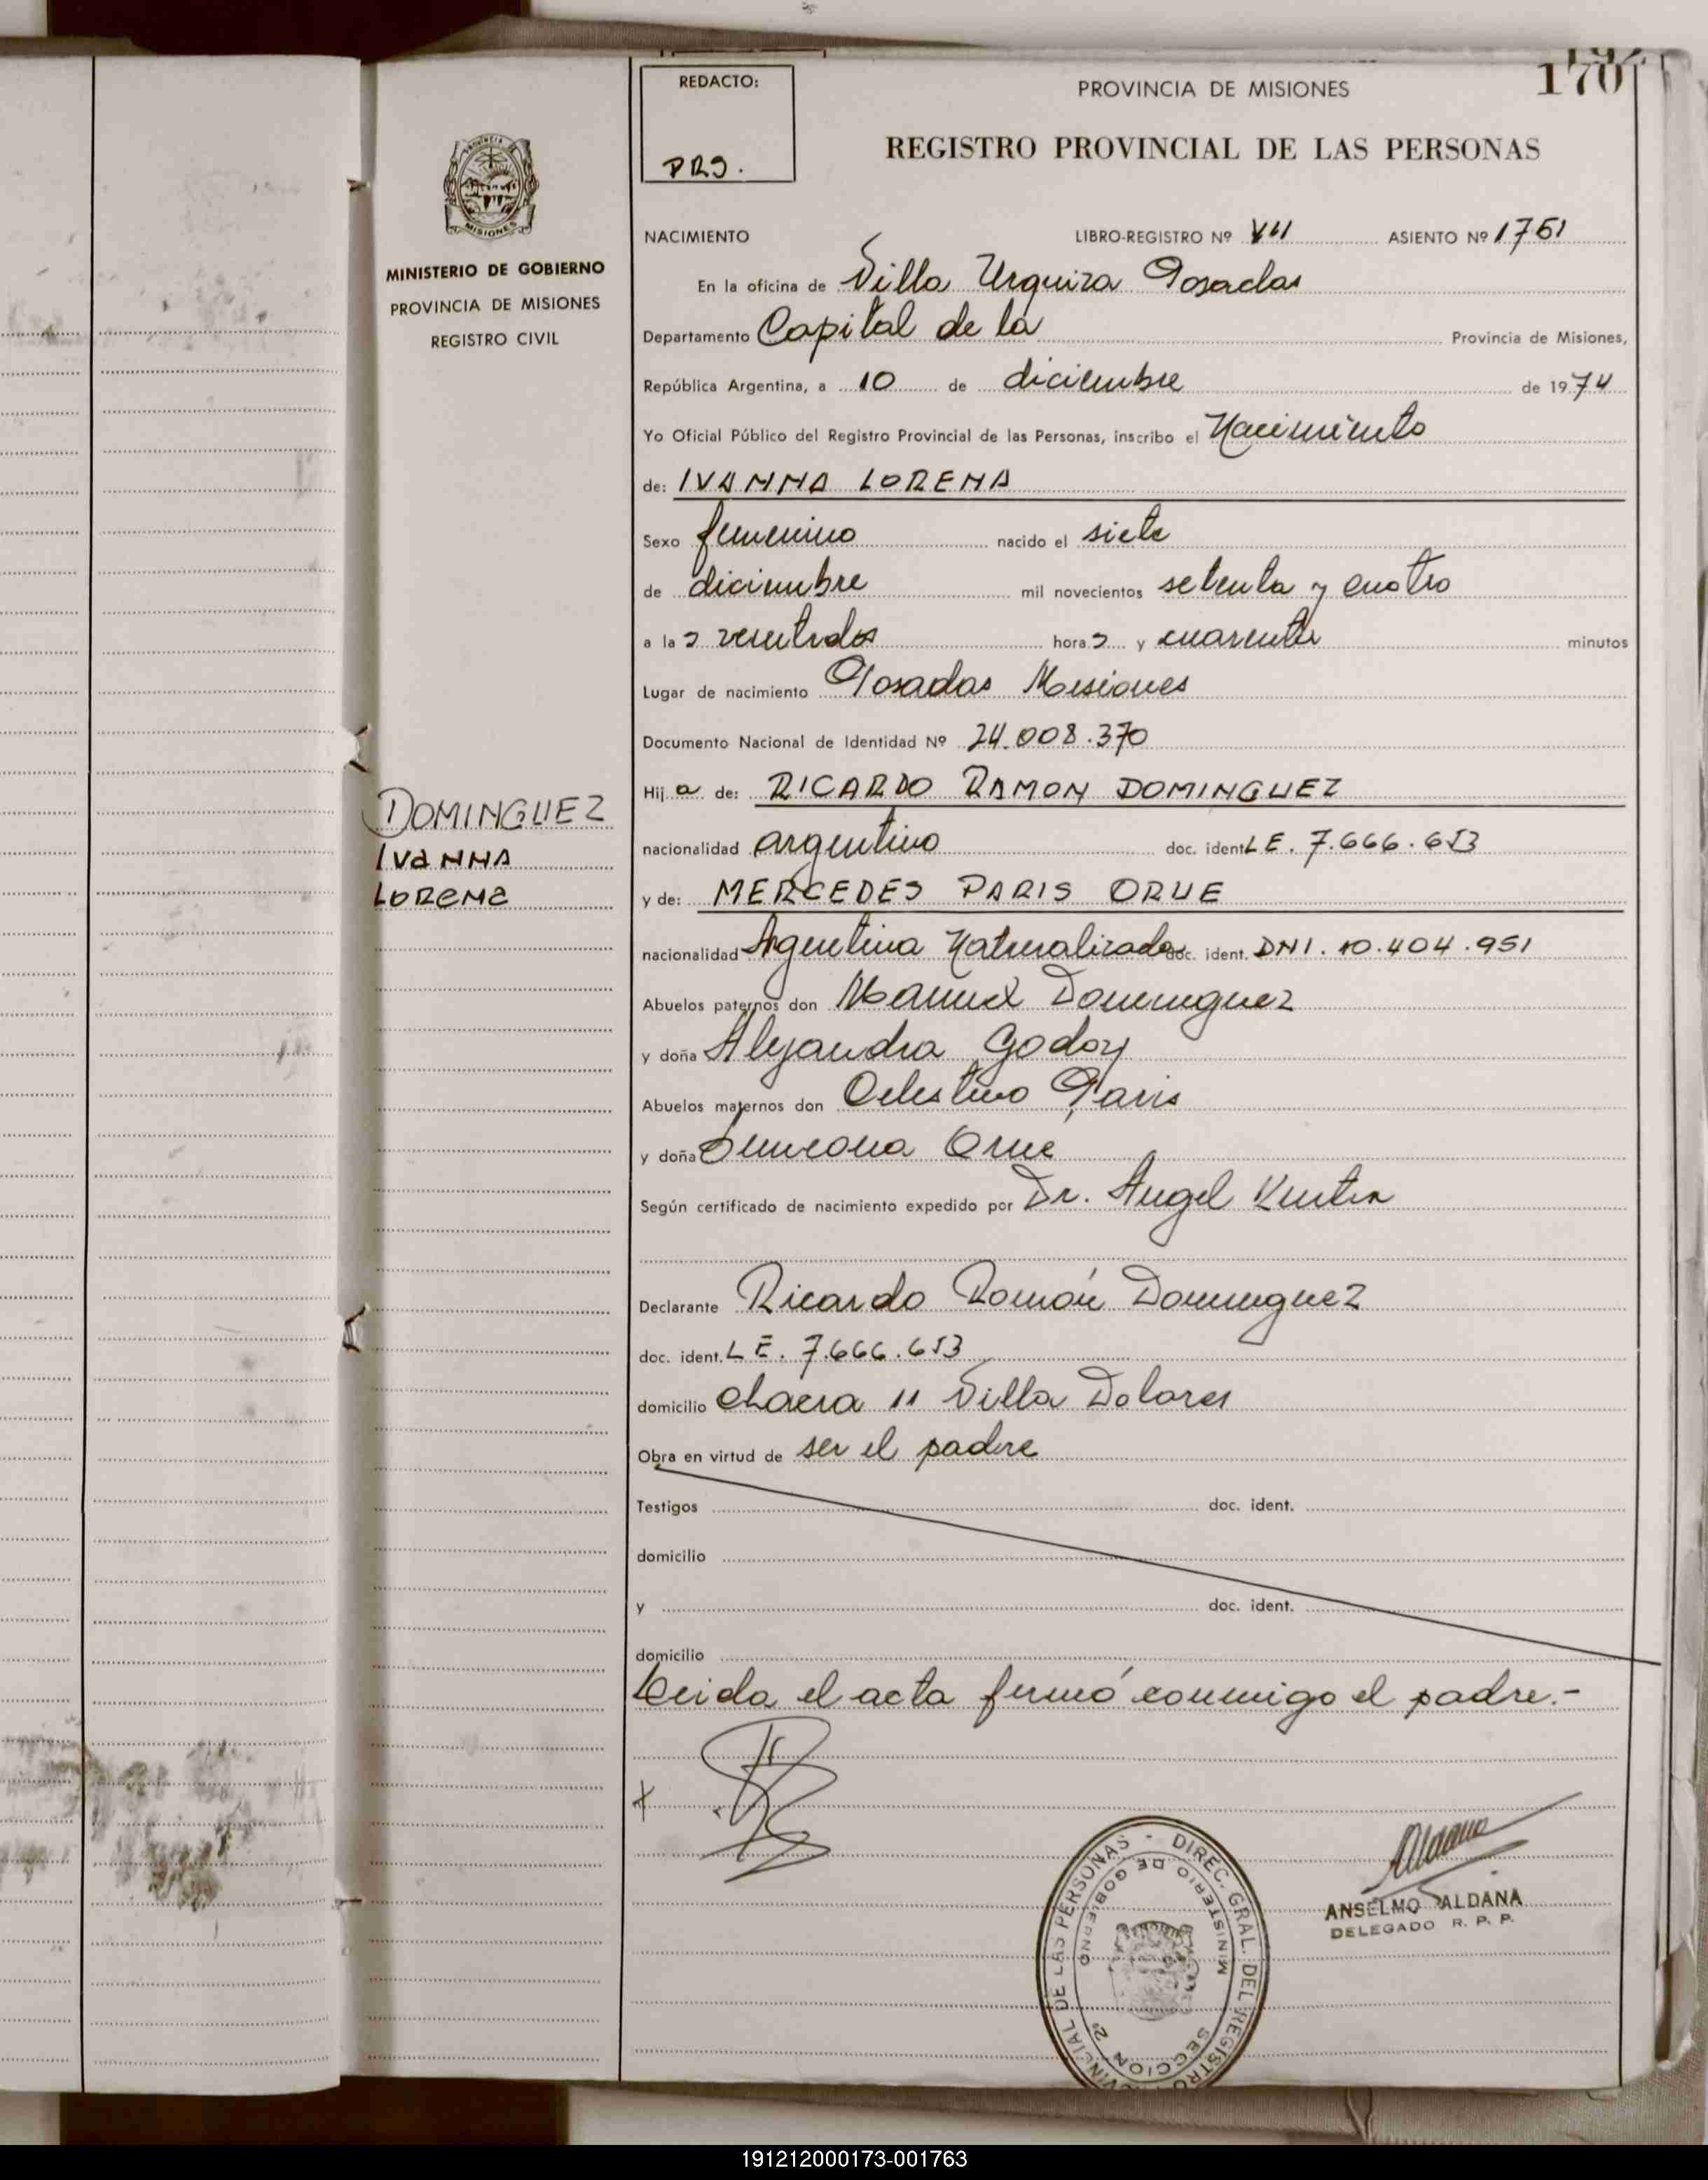 192
170
REDACTO:
PRS.
PROVINCIA DE MISIONES
REGISTRO PROVINCIAL DE LAS PERSONAS
MISIONES
MINISTERIO DE GOBIERNO
PROVINCIA DE MISIONES
REGISTRO CIVIL
DOMINGUEZ
IVANNA
LORENA
NACIMIENTO LIBRO-REGISTRO Nº VII ASIENTO Nº 1761
En la oficina de Villa Urquiza Posadas
Departamento Capital de la Provincia de Misiones,
República Argentina, a 10 de diciembre de 1974
Yo Oficial Público del Registro Provincial de las Personas, inscribo el Nacimiento
de: IVANNA LORENA
Sexo femenino nacido el siete
de diciembre mil novecientos setenta y cuatro
a las veintidos horas y cuarenta minutos
Lugar de nacimiento Posadas Misiones
Documento Nacional de Identidad Nº 24.008.370
Hija de: RICARDO RAMON DOMINGUEZ
nacionalidad argentino doc. ident. LE. 7.666.653
y de: MERCEDES PARIS ORUE
nacionalidad Agentina Naturalizada doc. ident. DNI. 10.404.951
Abuelos paternos don Manuel Dominguez
y doña Alejandra Godoy
Abuelos maternos don Celestino Paris
y doña Simeona Orué
Según certificado de nacimiento expedido por Dr. Angel
Declarante Ricardo Ramón Dominguez
doc. ident. LE. 7.666.653
domicilio chacra 11 Villa Dolores
Obra en virtud de ser el padre
Testigos doc. ident.
domicilio
y doc. ident.
domicilio
Leida el acta firmó conmigo el padre.-
x
DIREC. GRAL. DEL REGISTRO PROVINCIAL DE LAS PERSONAS -
MINISTERIO DE GOBIERNO
2ª SECCION
ANSELMO ALDANA
DELEGADO R. P. P.
191212000173-001763